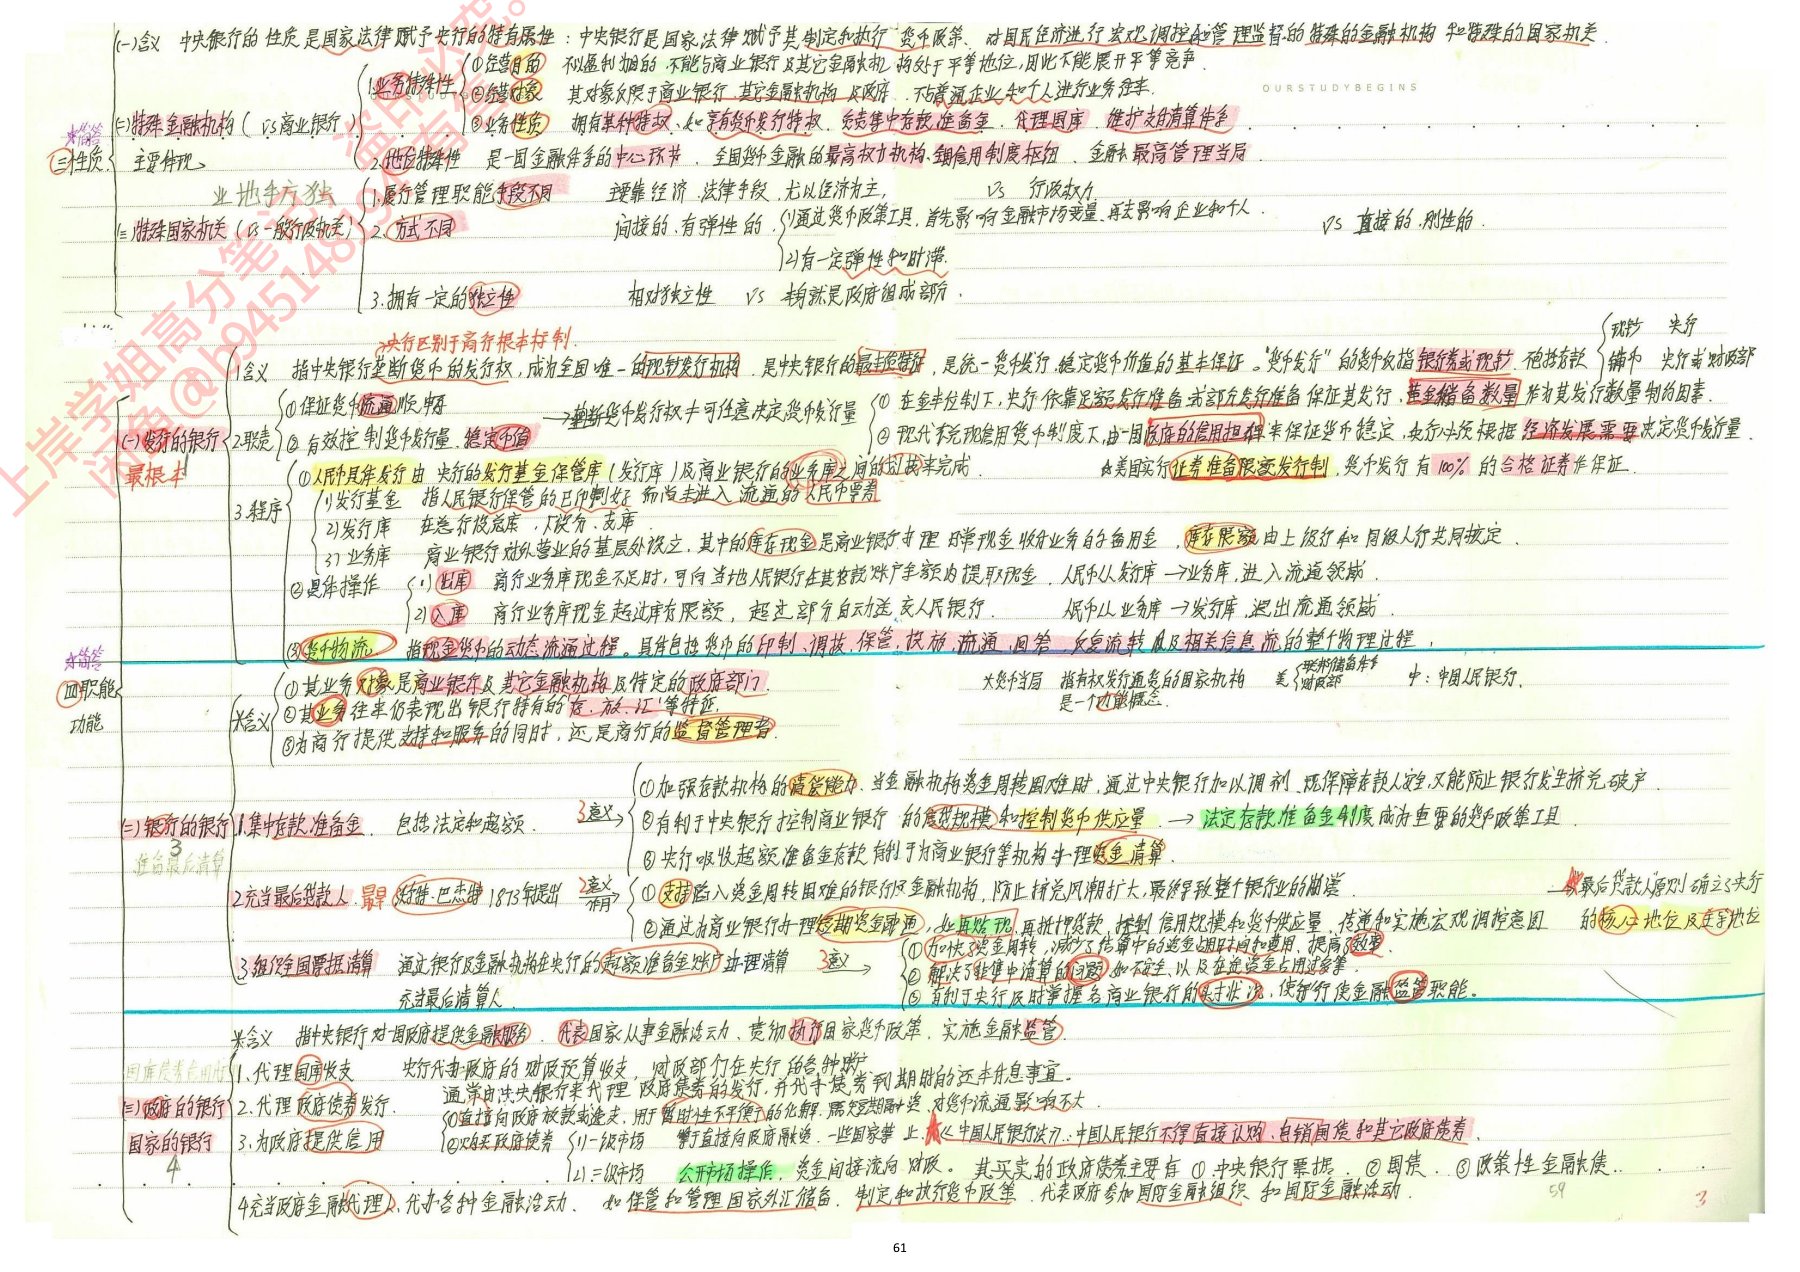 (一)含义 中央银行的性质是国家法律赋予央行的特有属性：中央银行是国家法律赋予其制定和执行货币政策、对国民经济进行宏观调控和管理监督的特殊的金融机构和特殊的国家机关.
OURSTUDYBEGINS
☆简答
三性质
(二)特殊金融机构(vs商业银行)
主要体现
1.业务特殊性
①经营目的 不以盈利为目的 不能与商业银行及其它金融机构处于平等地位,因此不能展开平等竞争.
②经营对象 其对象仅限于商业银行、其它金融机构及政府、不与普通企业和个人进行业务往来.
③业务性质 拥有某种特权、如享有货币发行特权、负责集中存款准备金、代理国库、维护支付清算体系
2.地位特殊性 是一国金融体系的中心环节、全国货币金融的最高权力机构、全国信用制度枢纽、金融最高管理当局.
业地手方独
(三)特殊国家机关(vs一般行政机关)
1.履行管理职能手段不同 主要靠经济、法律手段、尤以经济为主, vs 行政权力
2.方式不同 间接的、有弹性的 vs 直接的、刚性的.
1)通过货币政策工具,首先影响金融市场变量、再去影响企业和个人.
2)有一定弹性和时滞.
3.拥有一定的独立性 相对独立性 vs 本身就是政府组成部分.
央行区别于商行根本标制
☆简答
四职能
功能
(一)发行的银行
最根本
1.含义 指中央银行垄断货币的发行权,成为全国唯一的现钞发行机构、是中央银行的最本质特征,是统一货币发行、稳定货币价值的基本保证。"货币发行"的货币仅指银行券或现钞、不包括存款
现钞 央行
辅币 央行或财政部
2.职责
①保证货币流通顺畅
②有效控制货币发行量、稳定币值
→垄断货币发行权≠可任意决定货币发行量
①在金本位制下,央行依靠足额发行准备或部分发行准备保证其发行,黄金储备数量作为其发行数量制约因素.
②现代不兑现信用货币制度下,由一国政府的信用担保来保证货币稳定,央行必须根据经济发展需要决定货币发行量.
3.程序
①人民币具体发行由央行的发行基金保管库(发行库)及商业银行的业务库之间的划拨来完成. ☆美国实行证券准备限额发行制,货币发行有100%的合格证券作保证.
1)发行基金 指人民银行保管的已印制好而尚未进入流通的人民币票券
2)发行库 在总行设总库,下设分、支库.
3)业务库 商业银行对外营业的基层处设立,其中的库存现金是商业银行办理日常现金收付业务的备用金,库存限额由上级行和同级人行共同核定.
②具体操作
1)出库 商行业务库现金不足时,可向当地人民银行在其存款账户余额内提取现金. 人民币从发行库→业务库,进入流通领域.
2)入库 商行业务库现金超过库存限额,超过部分自动送交人民银行. 人民币从业务库→发行库,退出流通领域.
③货币物流 指现金货币的动态流通过程。具体包括货币的印制、调拨、保管、投放、流通、回笼、反复流转以及相关信息流的整个物理过程.
(二)银行的银行
3
准备最后清算
※含义
①其业务对象是商业银行及其它金融机构及特定的政府部门.
②其业务往来仍表现出银行特有的"存、放、汇"等特征.
③为商行提供支持和服务的同时,还是商行的监督管理者.
大货币当局 指有权发行通货的国家机构 美 联邦储备体系 财政部 中:中国人民银行.
是一个功能概念.
1.集中存款准备金. 包括法定和超额. 3意义→
①加强存款机构的清偿能力、当金融机构资金周转困难时,通过中央银行加以调剂、既保障存款人安全,又能防止银行发生挤兑破产.
②有利于中央银行控制商业银行的信贷规模和控制货币供应量.→法定存款准备金制度成为重要的货币政策工具.
③央行吸收超额准备金存款有利于为商业银行等机构办理资金清算.
2.充当最后贷款人. 最早 沃特·巴杰特1873年提出 2意义/作用→
①支持陷入资金周转困难的银行及金融机构,防止挤兑风潮扩大,最终导致整个银行业的崩溃.
②通过为商业银行办理短期资金融通,如再贴现、再抵押贷款,控制信用规模和货币供应量,传递和实施宏观调控意图
→"最后贷款人"原则确立了央行的核心地位及主导地位
3.组织全国票据清算 通过银行及金融机构在央行的超额准备金账户办理清算 3意义→
充当最后清算人.
①加快了资金周转,减少了结算中的资金占用时间和费用、提高了效率.
②解决了非集中清算的问题,如不安全、以及在途资金占用过多等.
③有利于央行及时掌握各商业银行的头寸状况,使央行行使金融监管职能。
(三)政府的银行
国家的银行
4
※含义 指中央银行对一国政府提供金融服务、代表国家从事金融活动、贯彻执行国家货币政策、实施金融监管.
1.代理国库收支 央行代办政府的财政预算收支,财政部门在央行的各种账户
2.代理政府债券发行. 通常由中央银行来代理政府债券的发行,并代办债券到期时的还本付息事宜.
3.为政府提供信用
①直接向政府放款或透支,用于暂时性不平衡的化解、属短期融资、对货币流通影响不大.
②购买政府债券
1)一级市场 等于直接向政府融资、一些国家禁止.☆《中国人民银行法》:中国人民银行不得直接认购、包销国债和其它政府债券.
2)二级市场 公开市场操作、资金间接流向财政。其买卖的政府债券主要有①中央银行票据.②国债.③政策性金融债.
4.充当政府金融代理人、代办各种金融活动. 如保管和管理国家外汇储备、制定和执行货币政策、代表政府参加国际金融组织和国际金融活动.
59
3
61
上岸学姐高分笔记，盗印必究。
闲鱼@b94514879